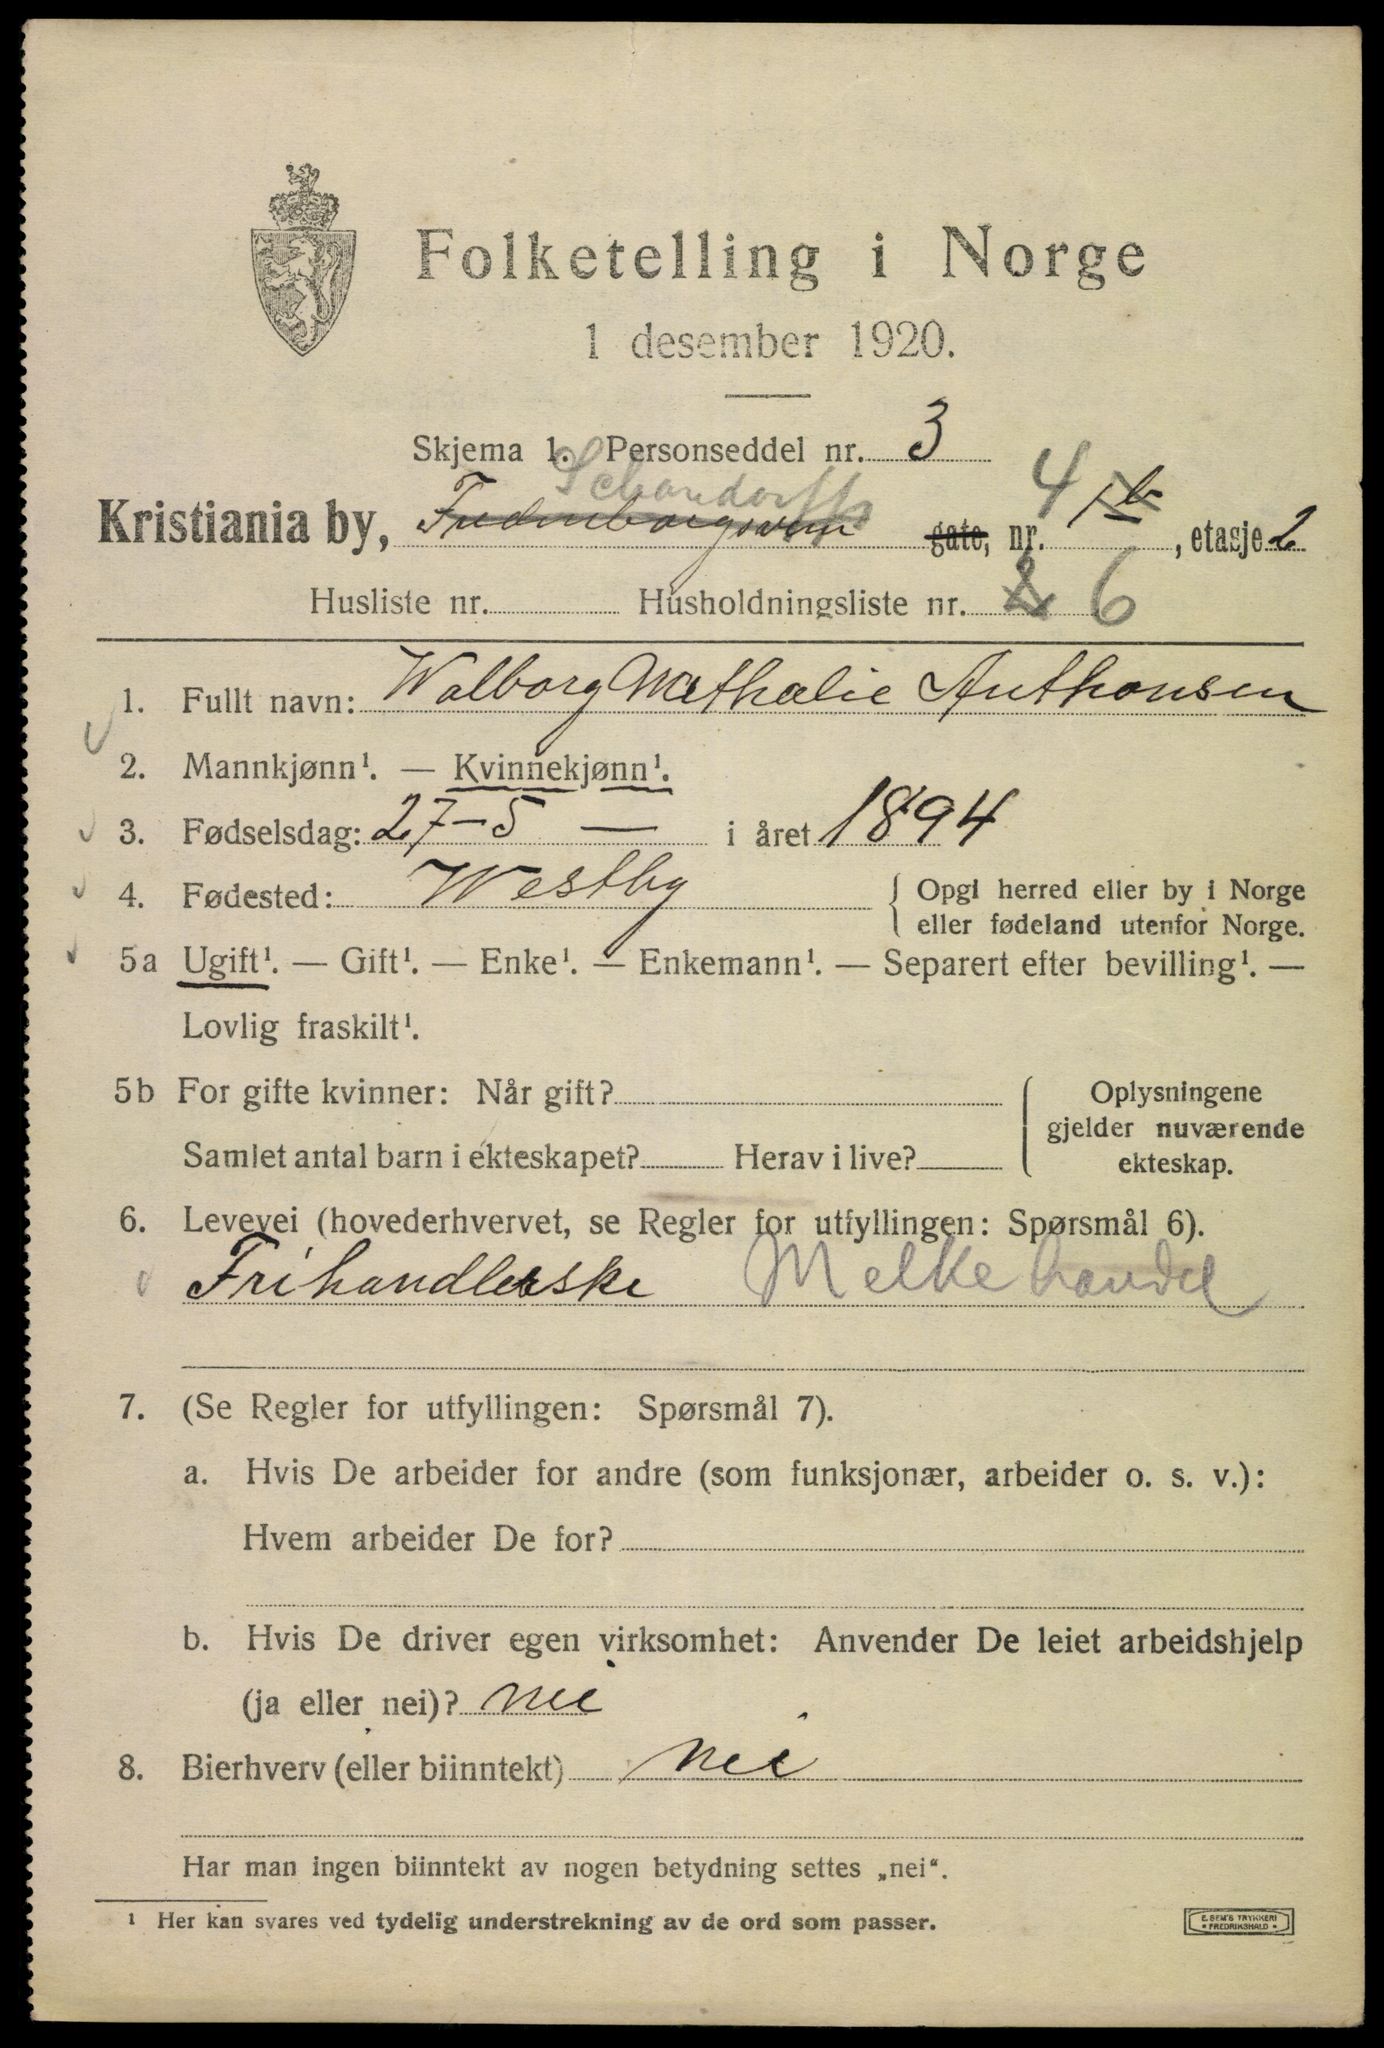 Folketelling i Norge
1 desember 1920.
Skjema 1. Personseddel nr. 3
Schandorffs 4
Kristiania by, Fredensborgsveien gate, nr. 1b, etasje 2
Husliste nr. Husholdningsliste nr. 2 6
1. Fullt navn: Walborg Mathalie Anthonsen
2. Mannkjønn¹. — Kvinnekjønn¹.
3. Fødselsdag: 27-5 — i året 1894
4. Fødested: Westby { Opgi herred eller by i Norge
eller fødeland utenfor Norge.
5a Ugift¹. — Gift¹. — Enke¹. — Enkemann¹. — Separert efter bevilling¹. —
Lovlig fraskilt¹.
5b For gifte kvinner: Når gift? Oplysningene
gjelder nuværende
Samlet antal barn i ekteskapet? Herav i live? ekteskap.
6. Levevei (hovederhvervet, se Regler for utfyllingen: Spørsmål 6).
Frihandlerske Melkehandel
7. (Se Regler for utfyllingen: Spørsmål 7).
a. Hvis De arbeider for andre (som funksjonær, arbeider o. s. v.):
Hvem arbeider De for?
b. Hvis De driver egen virksomhet: Anvender De leiet arbeidshjelp
(ja eller nei)? nei
8. Bierhverv (eller biinntekt) nei
Har man ingen biinntekt av nogen betydning settes „nei“.
¹ Her kan svares ved tydelig understrekning av de ord som passer.
E. SEM'S TRYKKERI
* FREDRIKSHALD *